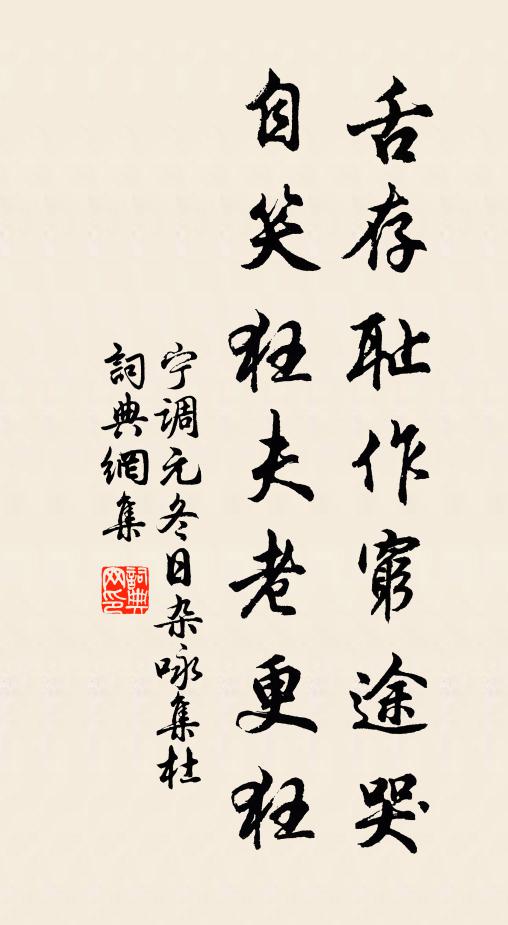 舌存耻作窮途哭
自笑狂夫老更狂
宁調元冬日杂咏集杜
詞典網集
詞典網印